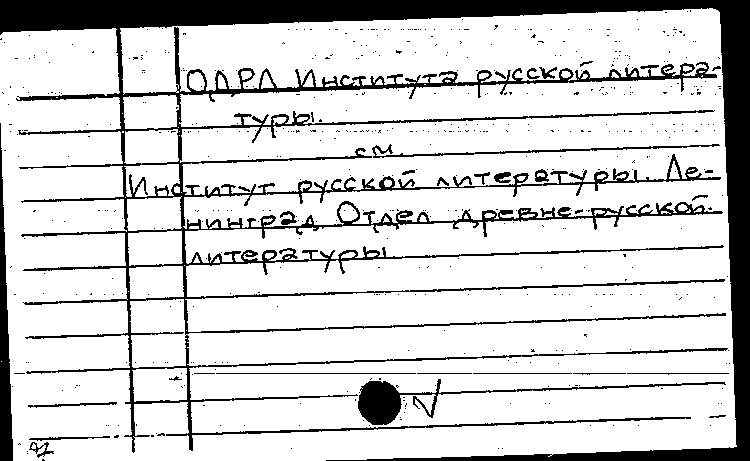 ОДРЛ Института русской литера-
туры.
см.
Институт русской литературы. Ле-
нинград. Отдел древне-русской
литературы.